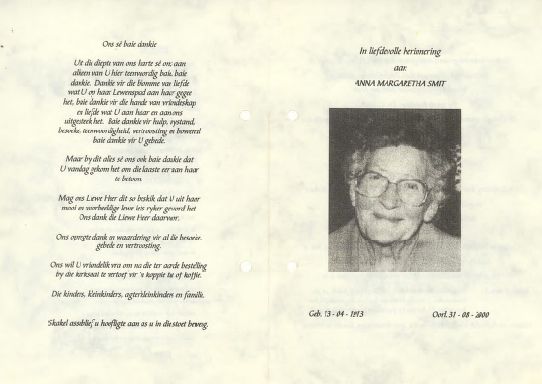 Ons sê baie dankie
Uit die diepte van ons harte sê ons aan
alleen van U hier teenwoordig baie, baie
dankie. Dankie vir die blomme van liefde
wat U op haar Lewenspad aan haar gegee
het, baie dankie vir die hande van vriendeskap
en liefde wat U aan haar en aan ons
uitgesteek het. Baie dankie vir hulp, bystand,
besoeke, teenwoordigheid, vertroosting en
baie dankie vir U gebede.
Maar by dit alles sê ons ook baie dankie dat
U vandag gekom het om die laaste eer aan haar
te betoon.
Mag ons Liewe Heer dit so beskik dat U uit haar
mooi en voorbeeldige lewe iets ryker geword het
Ons dank die Liewe Heer daarvoor.
Ons opregte dank en waardering vir al die besoeke,
gebede en vertroosting.
Ons wil U vriendelik vra om na die ter aarde bestelling
by die kerksaal te vertoef vir 'n koppie tee of koffie.
Die kinders, kleinkinders, agterkleinkinders en familie.
Skakel asseblief u hoofligte aan as u in die stoet beweeg.
In liefdevolle herinnering
aan
ANNA MARGARETHA SMIT
Geb. 13 - 04 - 1913
Oorl. 31 - 08 - 2000